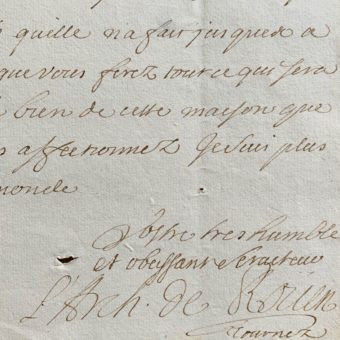 quelle na fait jusques a
que vous ferez tout ce qui sera
bien de cette maison que
affectionnez Je suis plus
monde
Vostre tres humble
et obeissant serviteur
L'Arch. de Rouen
tournez